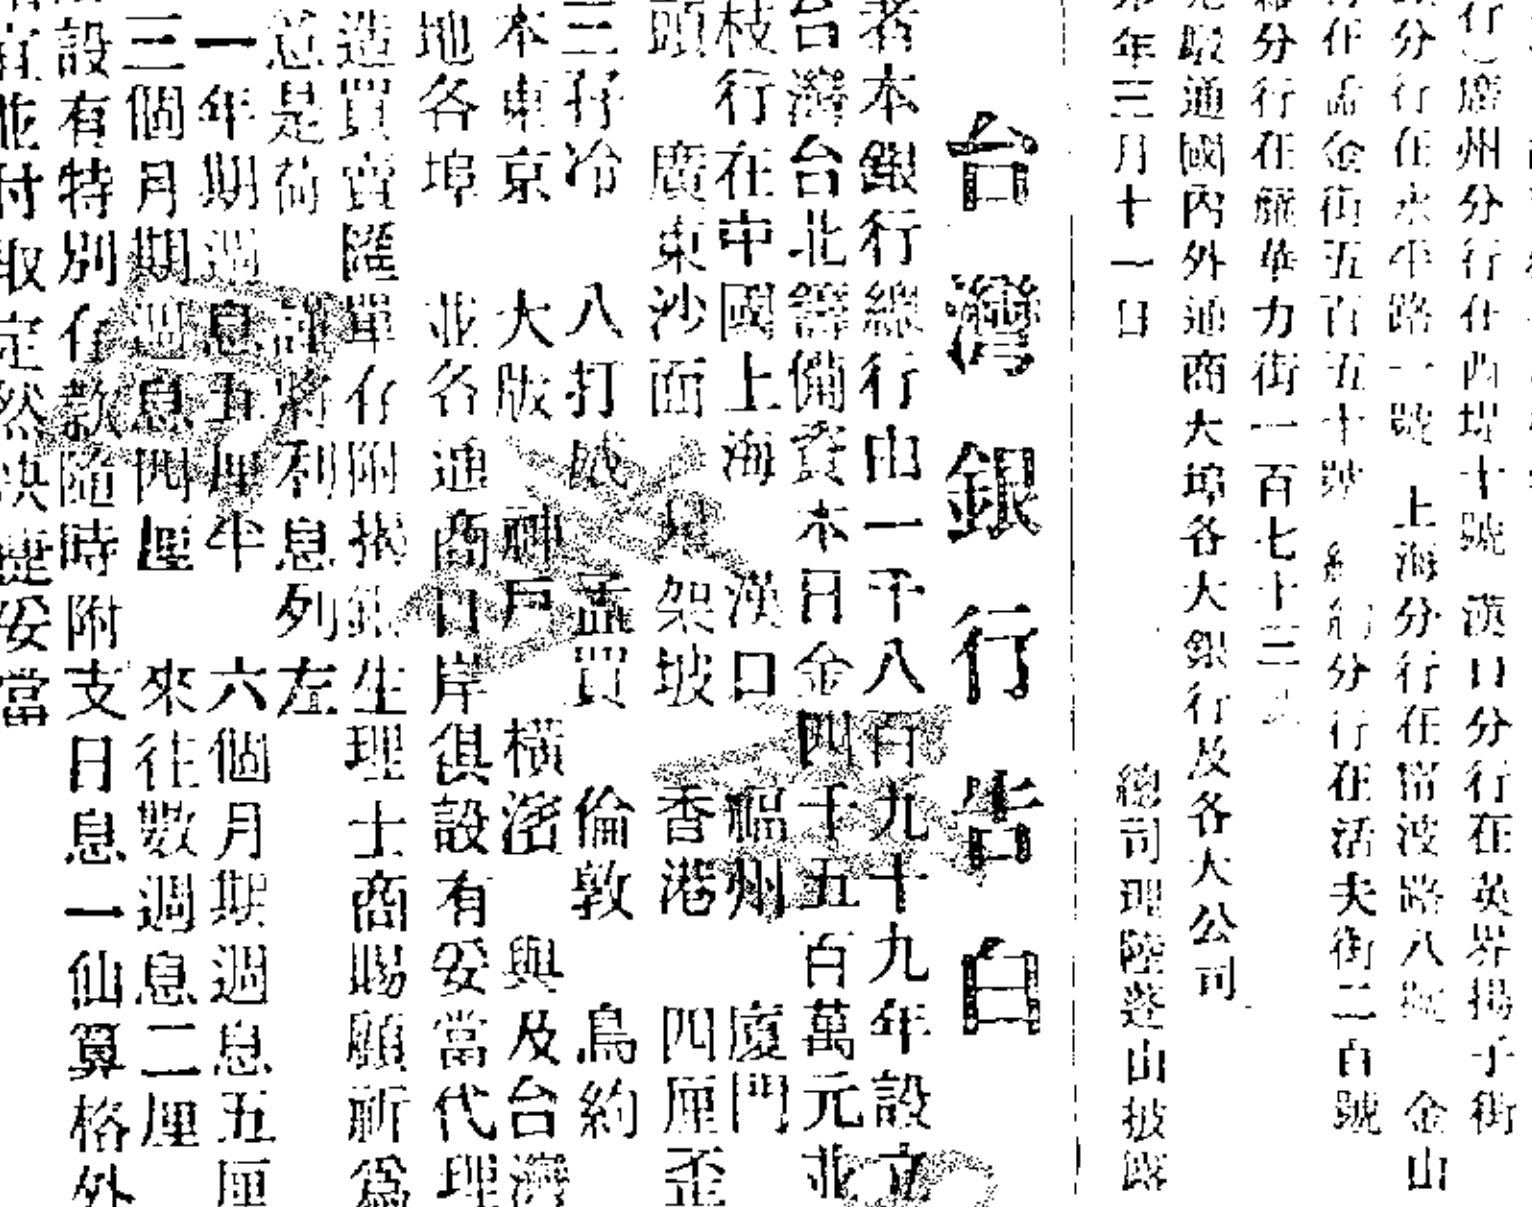 行 廣州分行在西堤十號 漢口分行在英界揚子街
分行在水牛路一號 上海分行在甯波路八號 金山
行在孟金街五百五十號 紐約分行在活夫街二百號
分行在 華力街一百七十三
殷通國內外通商大埠各大銀行及各大公司
年三月十一日 總司理陸蓬山披露
台灣銀行告白
者本銀行總行由一千八百九十九年設立
台灣台北籌備資本日金四千五百萬元並
枝行在中國上海 漢口 福州 廈門
頭 廣東沙面 星架坡 香港 四厘歪
三孖冷 八打威 孟買 倫敦 鳥約
本東京 大阪 神戶 橫濱 與及台灣
地各埠 並各通商口岸俱設有妥當代理
造買賣匯單存附揭銀生理士商賜顧祈爲
荵是荷 謹將利息列左
一年期週息五厘半 六個月期週息五厘
三個月期週息四厘 來往數週息二厘
設有特別存款隨時附支日息一仙算格外
宜並付取定然快捷妥當